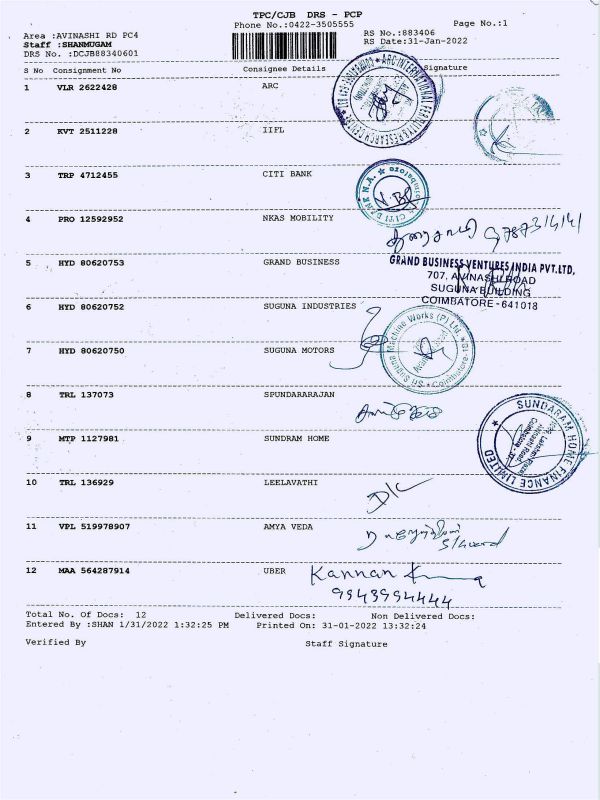 TPC/CJB DRS - PCP
Phone No.:0422-3505555 Page No.:1
Area :AVINASHI RD PC4 RS No.:883406
Staff :SHANMUGAM RS Date:31-Jan-2022
DRS No. :DCJB88340601
S No Consignment No Consignee Details Signature
1 VLR 2622428 ARC
ARC INTERNATIONAL FERTILITY & RESEARCH CENTRE
2 KVT 2511228 IIFL
3 TRP 4712455 CITI BANK
CITI BANK N.A. Coimbatore
4 PRO 12592952 NKAS MOBILITY
5 HYD 80620753 GRAND BUSINESS
GRAND BUSINESS VENTURES INDIA PVT.LTD,
707, AVINASHI ROAD
SUGUNA BUILDING
COIMBATORE - 641018
6 HYD 80620752 SUGUNA INDUSTRIES
7 HYD 80620750 SUGUNA MOTORS
Suguna Machine Works (P) Ltd. Coimbatore
8 TRL 137073 SPUNDARARAJAN
9 MTP 1127981 SUNDRAM HOME
SUNDARAM HOME FINANCE LIMITED
10 TRL 136929 LEELAVATHI
D/C
11 VPL 519978907 AMYA VEDA
12 MAA 564287914 UBER Kannan
9943994444
Total No. Of Docs: 12 Delivered Docs: Non Delivered Docs:
Entered By :SHAN 1/31/2022 1:32:25 PM Printed On: 31-01-2022 13:32:24
Verified By Staff Signature